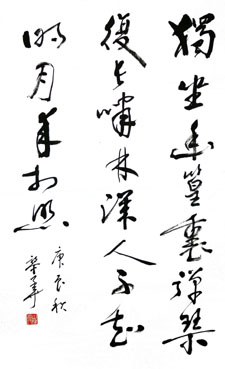 獨坐幽篁裏彈琴
復長嘯林深人不知
明月來相照
庚辰秋